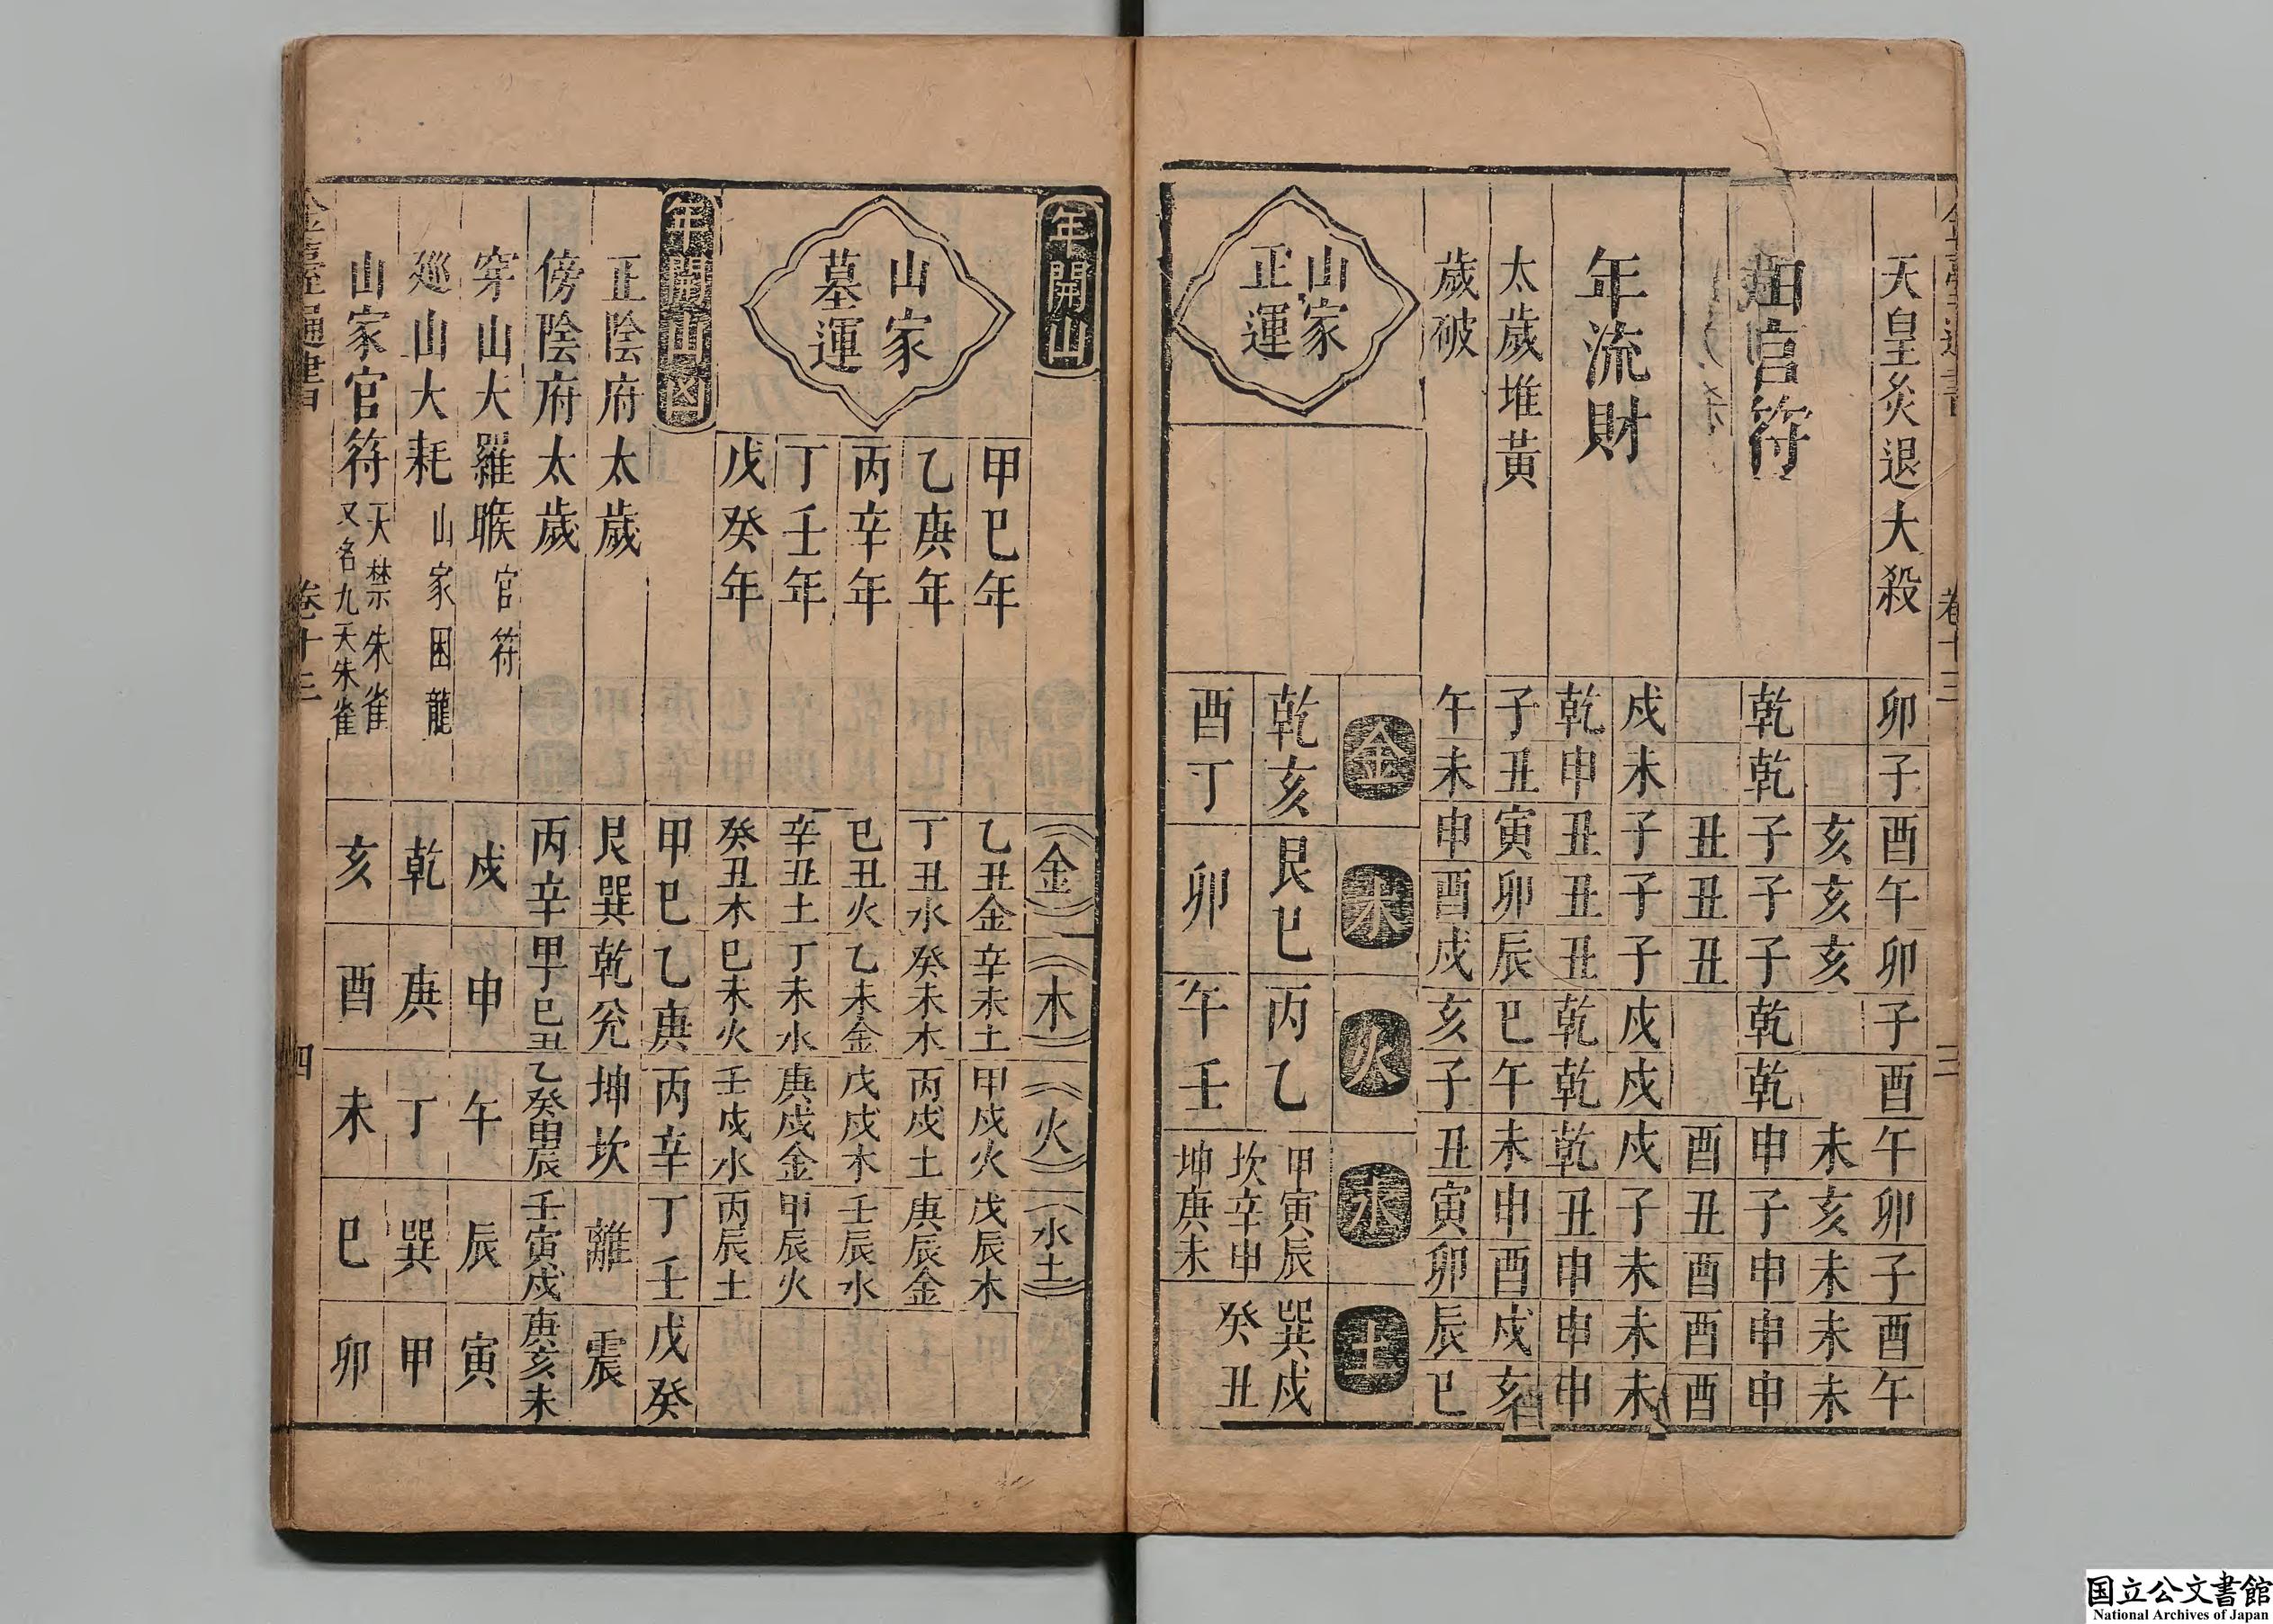 卷十三 三
天皇炙退大殺 卯 子 酉 午 卯 子 酉 午 卯 子 酉 午
亥 亥 亥 未 亥 未 未 未
官符 乾 乾 子 子 子 乾 乾 申 子 申 申 申
丑 丑 丑 酉 丑 酉 酉 酉
年流財 戌 未 子 子 子 戌 戌 戌 子 未 未 未
乾 申 丑 丑 丑 乾 乾 乾 丑 申 申 申
太歲堆黃 子 丑 寅 卯 辰 巳 午 未 申 酉 戌 亥
歲破 午 未 申 酉 戌 亥 子 丑 寅 卯 辰 巳
山家
正運
金 木 火 水 土
乾亥 艮巳 丙乙 甲寅辰 坎辛申 巽戌
酉丁 卯 午壬 坤庚未 癸丑
年開山 金 木 火 水土
山家
墓運
甲巳年 乙丑金 辛未土 甲戌火 戊辰木
乙庚年 丁丑水 癸未木 丙戌土 庚辰金
丙辛年 巳丑火 乙未金 戊戌木 壬辰水
丁壬年 辛丑土 丁未水 庚戌金 甲辰火
戊癸年 癸丑木 巳未火 壬戌水 丙辰土
年開山凶 甲巳 乙庚 丙辛 丁壬 戊癸
正陰府太歲 艮巽 乾兊 坤坎 離 震
傍陰府太歲 丙辛 甲丁巳丑 乙癸申辰 壬寅戌 庚亥未
穿山大羅睺 官符 戌 申 午 辰 寅
廵山大耗 山家困龍 乾 庚 丁 巽 甲
山家官符 天禁朱雀 又名九天朱雀 亥 酉 未 巳 卯
通書 卷十三 四
国立公文書館
National Archives of Japan